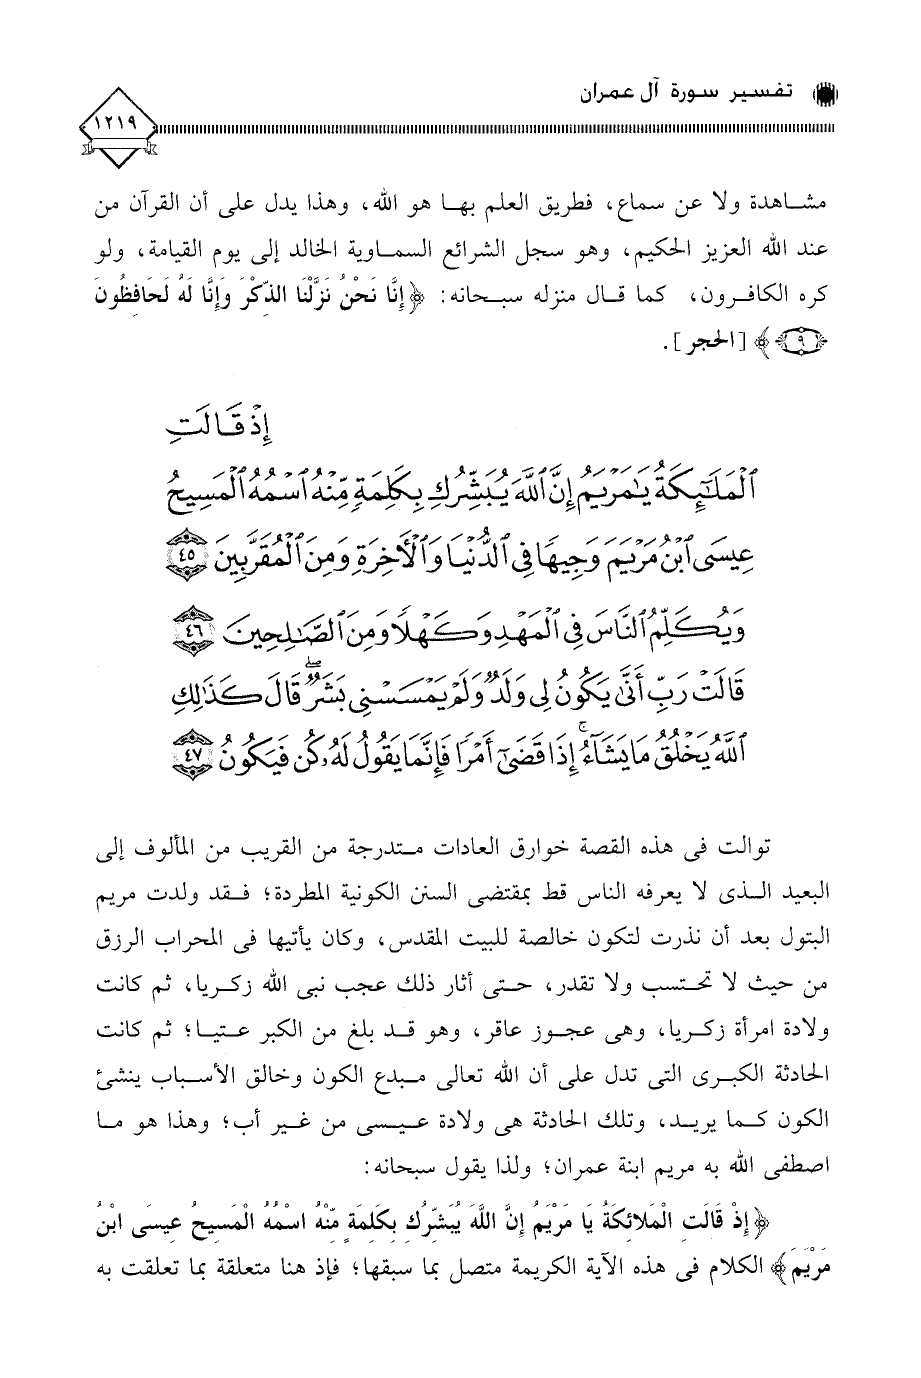 تفسير سورة آل عمران
١٢١٩
مشاهدة ولا عن سماع، فطريق العلم بها هو الله، وهذا يدل على أن القرآن من
عند الله العزيز الحكيم، وهو سجل الشرائع السماوية الخالد إلى يوم القيامة، ولو
كره الكافرون، كما قال منزله سبحانه: ﴿إِنَّا نَحْنُ نَزَّلْنَا الذِّكْرَ وَإِنَّا لَهُ لَحَافِظُونَ
﴿٩﴾﴾ [الحجر].
إِذْ قَالَتِ
ٱلْمَلَٰٓئِكَةُ يَٰمَرْيَمُ إِنَّ ٱللَّهَ يُبَشِّرُكِ بِكَلِمَةٍ مِّنْهُ ٱسْمُهُ ٱلْمَسِيحُ
عِيسَى ٱبْنُ مَرْيَمَ وَجِيهًا فِى ٱلدُّنْيَا وَٱلْأَخِرَةِ وَمِنَ ٱلْمُقَرَّبِينَ ٤٥
وَيُكَلِّمُ ٱلنَّاسَ فِى ٱلْمَهْدِ وَكَهْلًا وَمِنَ ٱلصَّٰلِحِينَ ٤٦
قَالَتْ رَبِّ أَنَّىٰ يَكُونُ لِى وَلَدٌ وَلَمْ يَمْسَسْنِى بَشَرٌ ۖ قَالَ كَذَٰلِكِ
ٱللَّهُ يَخْلُقُ مَا يَشَآءُ ۚ إِذَا قَضَىٰٓ أَمْرًا فَإِنَّمَا يَقُولُ لَهُۥ كُن فَيَكُونُ ٤٧
توالت فى هذه القصة خوارق العادات متدرجة من القريب من المألوف إلى
البعيد الذى لا يعرفه الناس قط بمقتضى السنن الكونية المطردة؛ فقد ولدت مريم
البتول بعد أن نذرت لتكون خالصة للبيت المقدس، وكان يأتيها فى المحراب الرزق
من حيث لا تحتسب ولا تقدر، حتى أثار ذلك عجب نبى الله زكريا، ثم كانت
ولادة امرأة زكريا، وهى عجوز عاقر، وهو قد بلغ من الكبر عتيا؛ ثم كانت
الحادثة الكبرى التى تدل على أن الله تعالى مبدع الكون وخالق الأسباب ينشئ
الكون كما يريد، وتلك الحادثة هى ولادة عيسى من غير أب؛ وهذا هو ما
اصطفى الله به مريم ابنة عمران؛ ولذا يقول سبحانه:
﴿إِذْ قَالَتِ الْمَلائِكَةُ يَا مَرْيَمُ إِنَّ اللَّهَ يُبَشِّرُكِ بِكَلِمَةٍ مِّنْهُ اسْمُهُ الْمَسِيحُ عِيسَى ابْنُ
مَرْيَمَ﴾ الكلام فى هذه الآية الكريمة متصل بما سبقها؛ فإذ هنا متعلقة بما تعلقت به